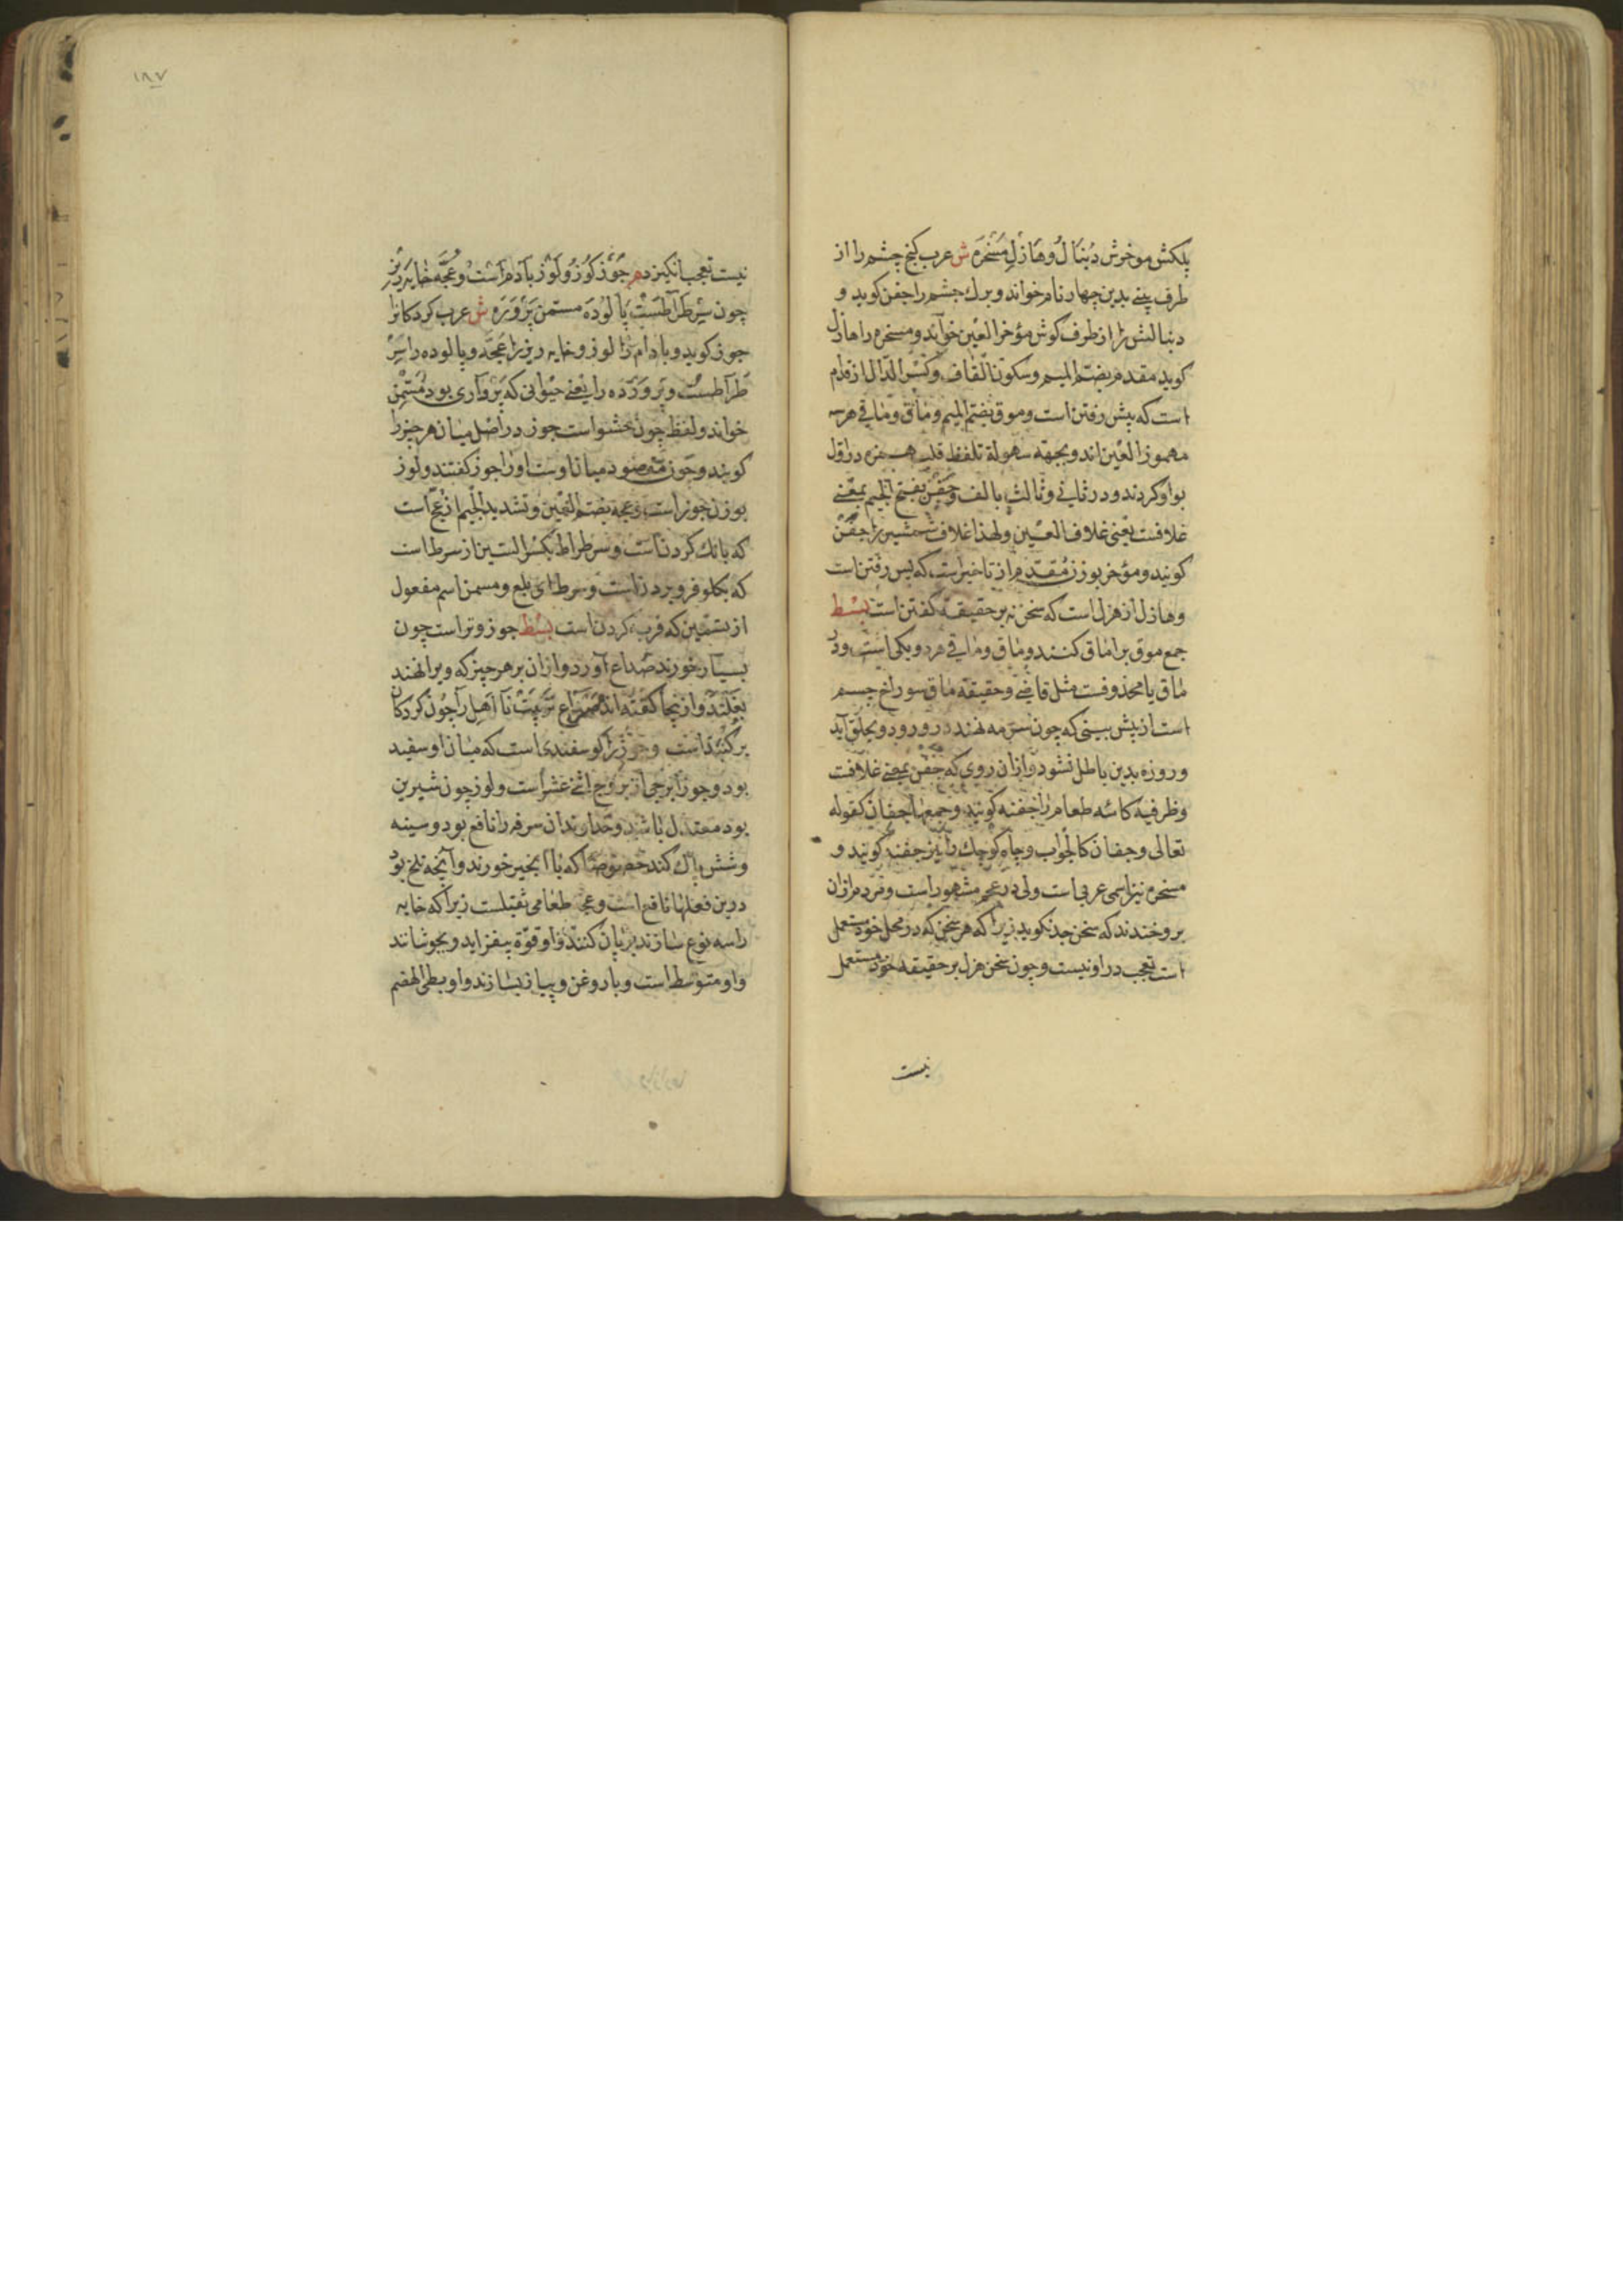 پلکش موخرش دُنبَالُ وهَازِل مَسْخَرَه ش عرب کنج چشم را از
طرف بینے بدین چهار نام خواند و برك چشم را جفن کوید و
دنبالش را از طرف کوش مؤخر العین خوانَد و مسخره را هازل
کوید مقدم بضم المیم وسکون القاف وکسر الدال از قدم
است که پیش رفتن است وموق بضم المیم ومٰاق ومٰاقی هرسه
مهموز العین اند وبجهة سهولة تلفظ قلب همزه در اول
بواو کردند ودر ثانی وثالث بالف وجفن بفتح الجیم بمعنے
غلافست یعنی غلاف العین ولهذا غلاف شمشیر را جفن
کویند ومؤخر بوزن مُقدم از تاخیر است که پس رفتن است
وهازل از هزل است که سخن نه بر حقیقة کفتن است بسط
جمع موق بر اماق کنند ومٰاق ومٰاقی هر دو یکی است ودر
مٰاق یا محذوفست مثل قاضے وحقیقة ماق سوراخ چسم
است از پیش بینی که چون سرمه نهند در ورود وبحلق آید
وروزه بدین باطل نشود وازان روی که جفن بمعنے غلافست
وظرفیة کاسٔه طعام را جفنه کویند وجمعها جفان کقوله
تعالی وجفان کالجواب وچاه کوچك را نیز جفنه کویند و
مسخره نیز اسمی عربی است ولی در عجم مشهور است ومردم ازان
بروخندند که سخن جد نکوید زیرا که هر سخن که در محل خود مستعمل
است تعجب در او نیست وچون سخن هزل بر حقیقه خود مستعمل
نیست
١٨٧
نیست تعجب انکیزد م جَوْز کَوْز ولَوْز بَادَام اسْت وعُجَّه خٰایه ریز
چون سِرِطْرَاطسْت پَالُودَه مسمّن پَرْوَرَه ش عرب کردکانرا
جوز کوید وبادام را لوز وخایه ریز را عجه وپالوده را سِرِ
طْرَاطست وپروَرْده را یعنے حیوانی که پرواری بود مسَمّن
خواند ولفظ چون حشو است جوز در اصل میان هر چیز را
کویند وچون مقصود میان اوست اورا جوز کفتند ولوز
بوزن جوز است وعجه بضم العین وتشدید الجیم از عج است
که بانك کردن است وسرطراط بکسر السین از سرط است
که بکلو فرو بردن است وسرط ای بلع ومسمن اسم مفعول
از تسمین که فربه کردن است بسط جوز وتر است چون
بسیار خورند صداع آورد وازان بر هر چیز که ویرا نهند
بغلتد وازینجا کفته اند مصراع تربیت نا اهل را چون کردکان
بر کنبد است وجوزا کوسفندی است که میان او سفید
بود وجوزا برجی از بروج اثنے عشر است ولوز چون شیرین
بود معتدل باشد وخداوندان سرفه را نافع بود وسینه
وشش پاك کند خصوصا که با انجیر خورند وآنچه تلخ بود
درین فعلها نافع است وعجه طعامی ثقیلست زیرا که خایه
را سه نوع سازند بریان کنند واو قوة بیفزاید وبجوشانند
واو متوسط است وبا روغن وپیاز بسازند واو بطی الهضم